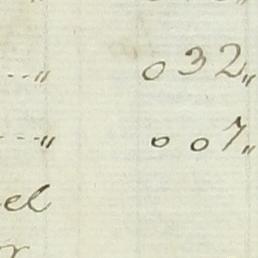 ...〃 0 32〃
...〃 0 07〃
el